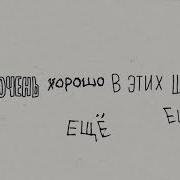 ОЧЕНЬ хорошо В ЭТИХ
ЕЩЁ